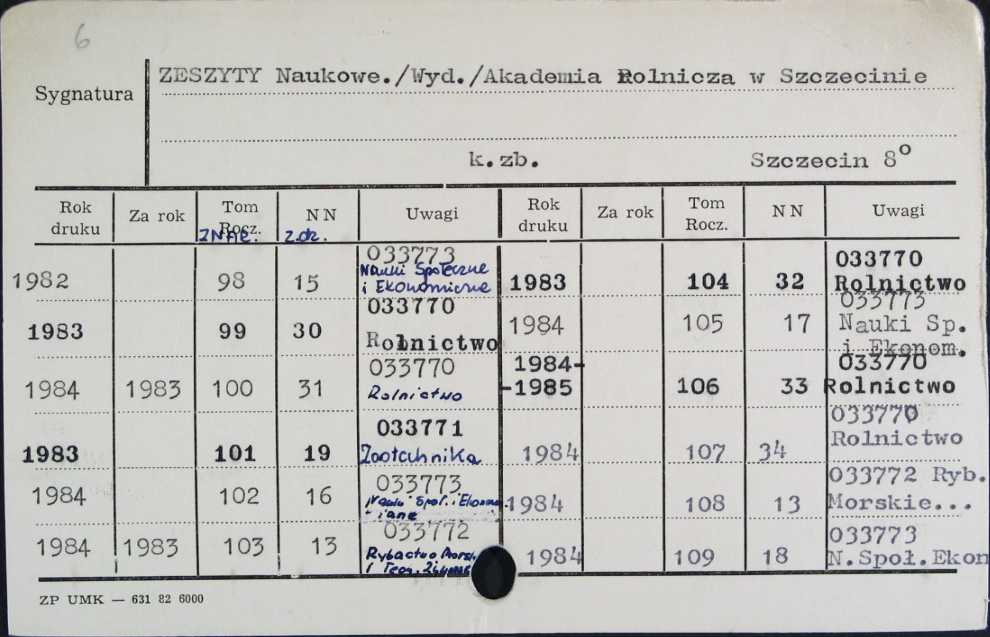 6
Sygnatura
ZESZYTY Naukowe./Wyd./Akademia Rolnicza w Szczecinie
k.zb. Szczecin 8°
Rok druku Za rok Tom Rocz. NN Uwagi Rok druku Za rok Tom Rocz. NN Uwagi
z.dz.
1982 98 15 033773 Nauki Społeczne i Ekonomiczne
1983 104 32 033770 Rolnictwo
1983 99 30 033770 Rolnictwo
1984 105 17 033773 Nauki Sp. i Ekonom.
1984 1983 100 31 033770 Rolnictwo
1984-1985 106 33 033770 Rolnictwo
1983 101 19 033771 Zootechnika
1984 107 34 033770 Rolnictwo
1984 102 16 033773 Nauki Społ. i Ekonom.
1984 108 13 033772 Ryb. Morskie...
1984 1983 103 13 033772 Rybactwo Morsk. i Tech.
1984 109 18 033773 N.Społ.Ekon
ZP UMK — 631 82 6000